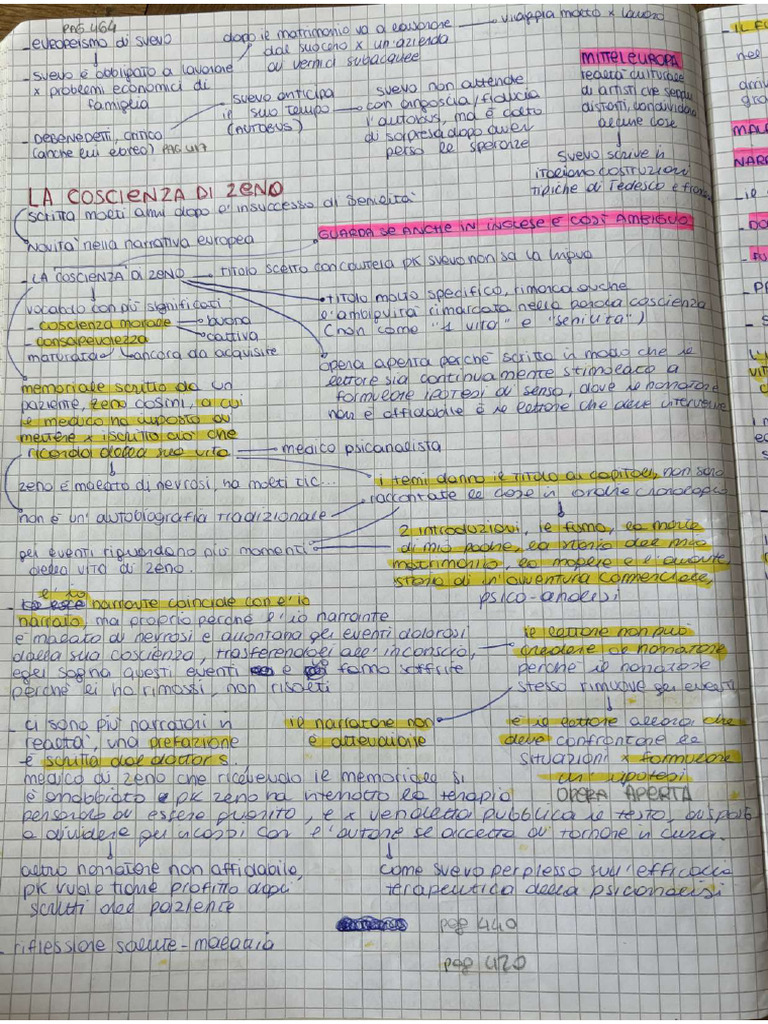 PAG 464
- europeismo di svevo
dopo il matrimonio va a lavorare → viaggia molto x lavoro
dal suocero x un'azienda
di vernici subacquee
- svevo è obbligato a lavorare
x problemi economici di
famiglia
svevo anticipa
il suo tempo
(autobus)
svevo non attende
con angoscia/fiducia
l'autobus, ma è colto
di sorpresa dopo aver
perso le speranze
MITTELEUROPA
realtà culturale
di artisti che seppur
distanti, condividono
alcune cose
- DEBENEDETTI, critico
(anche lui ebreo) PAG 417
svevo scrive in
italiano costruzioni
tipiche di tedesco e
LA COSCIENZA DI ZENO
scritta molti anni dopo l'insuccesso di Senilità
GUARDA SE ANCHE IN INGLESE È COSÌ AMBIGUO
novità nella narrativa europea
- LA COSCIENZA DI ZENO → titolo scelto con cautela pk svevo non sa la lingua
vocabolo con più significati
- coscienza morale → buona
→ cattiva
- consapevolezza
maturata ancora da acquisire
• titolo molto specifico, rimarca anche
l'ambiguità rimarcata nella parola coscienza
(non come "1 vita" e "senilità")
opera aperta perché scritta in modo che il
lettore sia continuamente stimolato a
formulare ipotesi di senso, dove il narratore
non è affidabile è il lettore che deve intervenire
memoriale scritto da un
paziente, zeno cosini, a cui
il medico ha imposto di
mettere x iscritto ciò che
ricorda della sua vita → medico psicanalista
zeno è malato di nevrosi, ha molti tic...
i temi danno il titolo ai capitoli, non sono
raccontate le cose in ordine cronologico
non è un'autobiografia tradizionale
gli eventi riguardano più momenti
della vita di zeno.
2 introduzioni, il fumo, la morte
di mio padre, la storia del mio
matrimonio, la moglie e l'amante
storia di un'avventura commerciale,
psico-analisi
- l'io narrante coincide con l'io
narrato, ma proprio perché l'io narrante
è malato di nevrosi e allontana gli eventi dolorosi
dalla sua coscienza, trasferendoli all'inconscio,
egli sogna questi eventi e fanno soffrire
perché li ha rimossi, non risolti
il lettore non può
credere al narratore
perché il narratore
stesso rimuove gli eventi
- ci sono più narratori in
realtà, una prefazione
è scritta dal dottor S
il narratore non
è attendibile
e il lettore allora che
deve confrontare le
situazioni x formulare
un'ipotesi
OPERA APERTA
medico di zeno che ricevendo le memorie si
è arrabbiato pk zeno ha interrotto la terapia
pensando di essere guarito, e x vendetta pubblica il testo, disposto
a dividere gli incassi con l'autore se accetta di tornare in cura.
altro narratore non affidabile,
pk vuole trarre profitto dagli
scritti del paziente
come svevo perplesso sull'efficacia
terapeutica della psicoanalisi
pag 440
- riflessione salute-malattia
pag 420